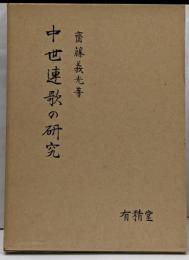 中世連歌の研究
齋藤義光著
有精堂